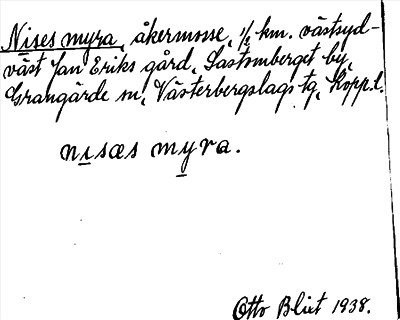 Nises myra, åkermosse, 1/2 km. västsyd-
väst Jan Eriks gård, Saxtomberget by,
Grangärde sn, Västerbergslags tg, Kopp.l.
nisæs myra.
Otto Blixt 1938.